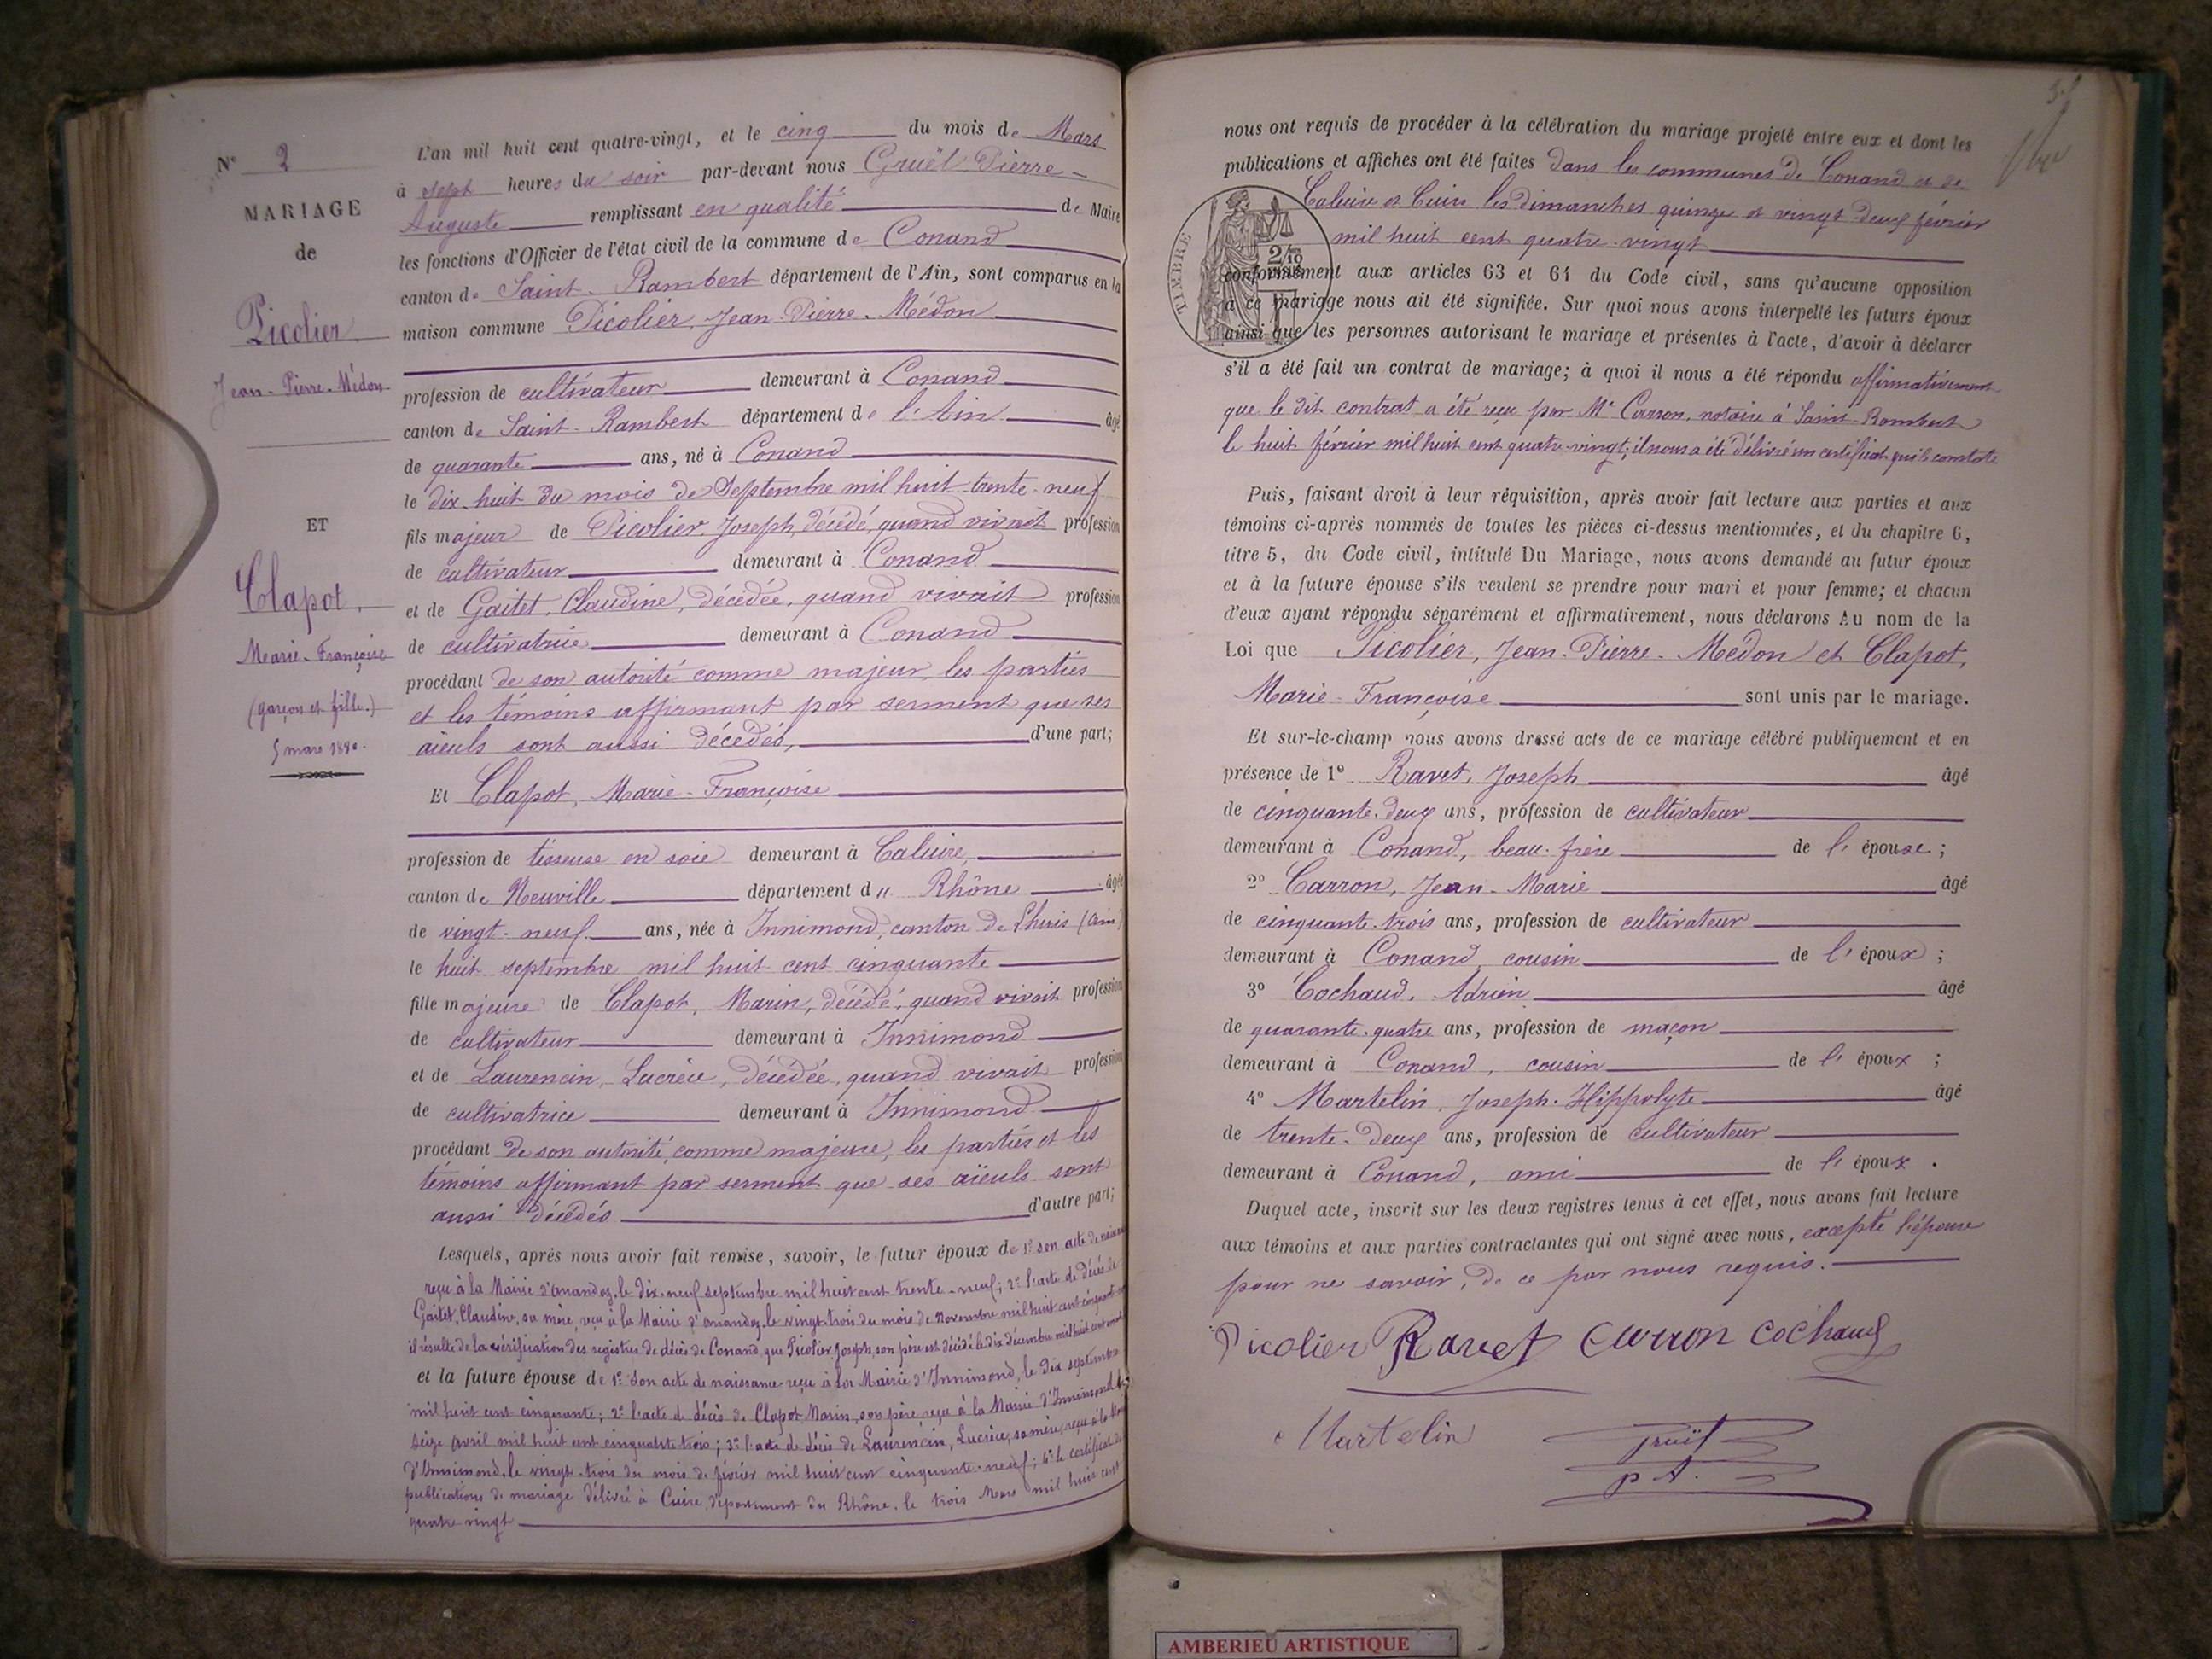 N° 2
MARIAGE
de
Picolier
Jean-Pierre-Médon
ET
Clapot,
Marie-Françoise
(garçon et fille.)
5 mars 1880.
L'an mil huit cent quatre-vingt, et le cinq du mois de Mars
à sept heures du soir par-devant nous Gruët Pierre-
Auguste remplissant en qualité de Maire
les fonctions d'Officier de l'état civil de la commune de Conand
canton de Saint-Rambert département de l'Ain, sont comparus en la
maison commune Picolier, Jean-Pierre-Médon
profession de cultivateur demeurant à Conand
canton de Saint-Rambert département de l'Ain âgé
de quarante ans, né à Conand
le dix-huit du mois de Septembre mil huit trente-neuf
fils majeur de Picolier, Joseph, décédé, quand vivait profession
de cultivateur demeurant à Conand
et de Gaitet, Claudine, décédée, quand vivait profession
de cultivatrice demeurant à Conand
procédant de son autorité comme majeur, les parties
et les témoins affirmant par serment que ses
aïeuls sont aussi décédés, d'une part;
Et Clapot, Marie-Françoise
profession de tisseuse en soie demeurant à Caluire,
canton de Neuville département du Rhône âgée
de vingt-neuf ans, née à Innimond, canton de Lhuis (Ain)
le huit septembre mil huit cent cinquante
fille majeure de Clapot, Marin, décédé, quand vivait profession
de cultivateur demeurant à Innimond
et de Laurencin, Lucrèce, décédée, quand vivait profession
de cultivatrice demeurant à Innimond
procédant de son autorité, comme majeure, les parties et les
témoins affirmant par serment que ses aïeuls sont
aussi décédés d'autre part;
Lesquels, après nous avoir fait remise, savoir, le futur époux de 1° son acte de
reçu à la Mairie d'Arandaz, le dix-neuf septembre mil huit cent trente-neuf; 2° l'acte de décès de
Gaitet, Claudine, sa mère, reçu à la Mairie d'Arandaz, le vingt-trois du mois de Novembre mil huit cent
il résulte de la vérification des registres de décès de Conand, que Picolier Joseph, son père est décédé le dix décembre mil huit cent
et la future épouse de 1° Son acte de naissance reçu à la Mairie d'Innimond, le dix septembre
mil huit cent cinquante; 2° l'acte de décès de Clapot, Marin, son père, reçu à la Mairie d'Innimond le
seize Avril mil huit cent cinquante trois; 3° l'acte de décès de Laurencin, Lucrèce, sa mère, reçu à la
d'Innimond, le vingt-trois du mois de février mil huit cent cinquante-neuf; 4° le certificat de
publications de mariage délivré à Cuire, département du Rhône, le trois Mars mil huit cent
quatre-vingt
nous ont requis de procéder à la célébration du mariage projeté entre eux et dont les
publications et affiches ont été faites dans les communes de Conand et de
Caluire et Cuire les dimanches quinze et vingt deux février
mil huit cent quatre-vingt
TIMBRE
conformément aux articles 63 et 64 du Code civil, sans qu'aucune opposition
à ce mariage nous ait été signifiée. Sur quoi nous avons interpellé les futurs époux
ainsi que les personnes autorisant le mariage et présentes à l'acte, d'avoir à déclarer
s'il a été fait un contrat de mariage; à quoi il nous a été répondu affirmativement
que le dit contrat a été reçu par Me Carron, notaire à Saint-Rambert
le huit février mil huit cent quatre-vingt; il nous a été délivré un certificat qui le constate
Puis, faisant droit à leur réquisition, après avoir fait lecture aux parties et aux
témoins ci-après nommés de toutes les pièces ci-dessus mentionnées, et du chapitre 6,
titre 5, du Code civil, intitulé Du Mariage, nous avons demandé au futur époux
et à la future épouse s'ils veulent se prendre pour mari et pour femme; et chacun
d'eux ayant répondu séparément et affirmativement, nous déclarons Au nom de la
Loi que Picolier, Jean-Pierre-Médon et Clapot,
Marie-Françoise sont unis par le mariage.
Et sur-le-champ nous avons dressé acte de ce mariage célébré publiquement et en
présence de 1° Ravet, Joseph âgé
de cinquante-deux ans, profession de cultivateur
demeurant à Conand, beau-frère de l'épouse;
2° Carron, Jean-Marie âgé
de cinquante-trois ans, profession de cultivateur
demeurant à Conand, cousin de l'époux;
3° Cochaud, Adrien âgé
de quarante-quatre ans, profession de maçon
demeurant à Conand, cousin de l'époux;
4° Martelin, Joseph-Hippolyte âgé
de trente-deux ans, profession de cultivateur
demeurant à Conand, ami de l'époux.
Duquel acte, inscrit sur les deux registres tenus à cet effet, nous avons fait lecture
aux témoins et aux parties contractantes qui ont signé avec nous, excepté l'épouse
pour ne savoir, de ce par nous requis.
Picolier Ravet Carron Cochaud
Martelin Gruët
P A.
AMBERIEU ARTISTIQUE